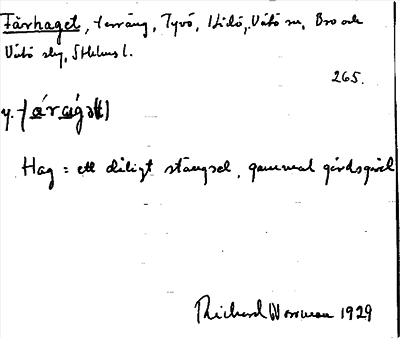 Fårhaget, terräng, Tyvö, Lidö, Vätö sn, Bro och
Vätö skg, Sthlms l.
265.
y.
Hag = ett dåligt stängsel, gammal gärdsgård
Richard Worman 1929